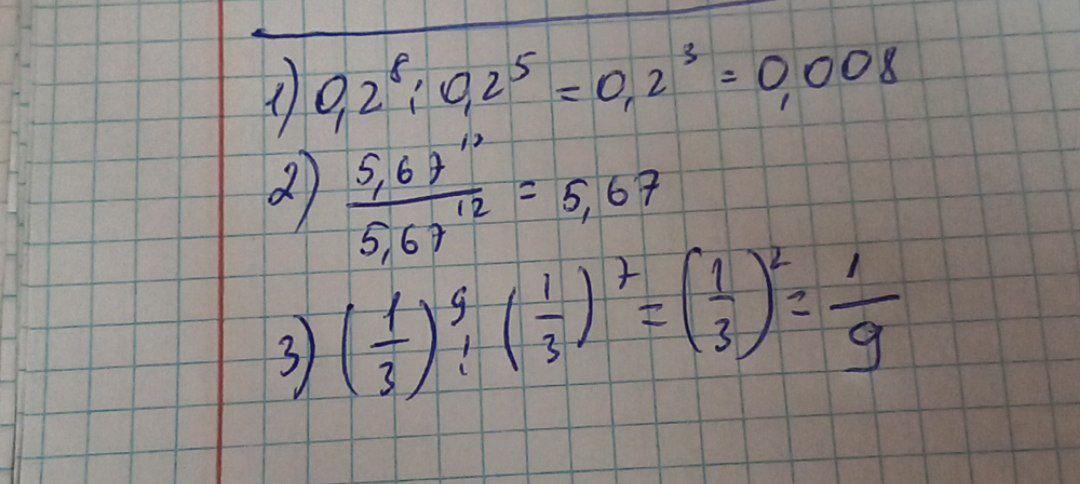 1) 0,2⁸ : 0,2⁵ = 0,2³ = 0,008
2) 5,67¹² / 5,67¹² = 5,67
3) (1/3)⁹ : (1/3)⁷ = (1/3)² = 1/9